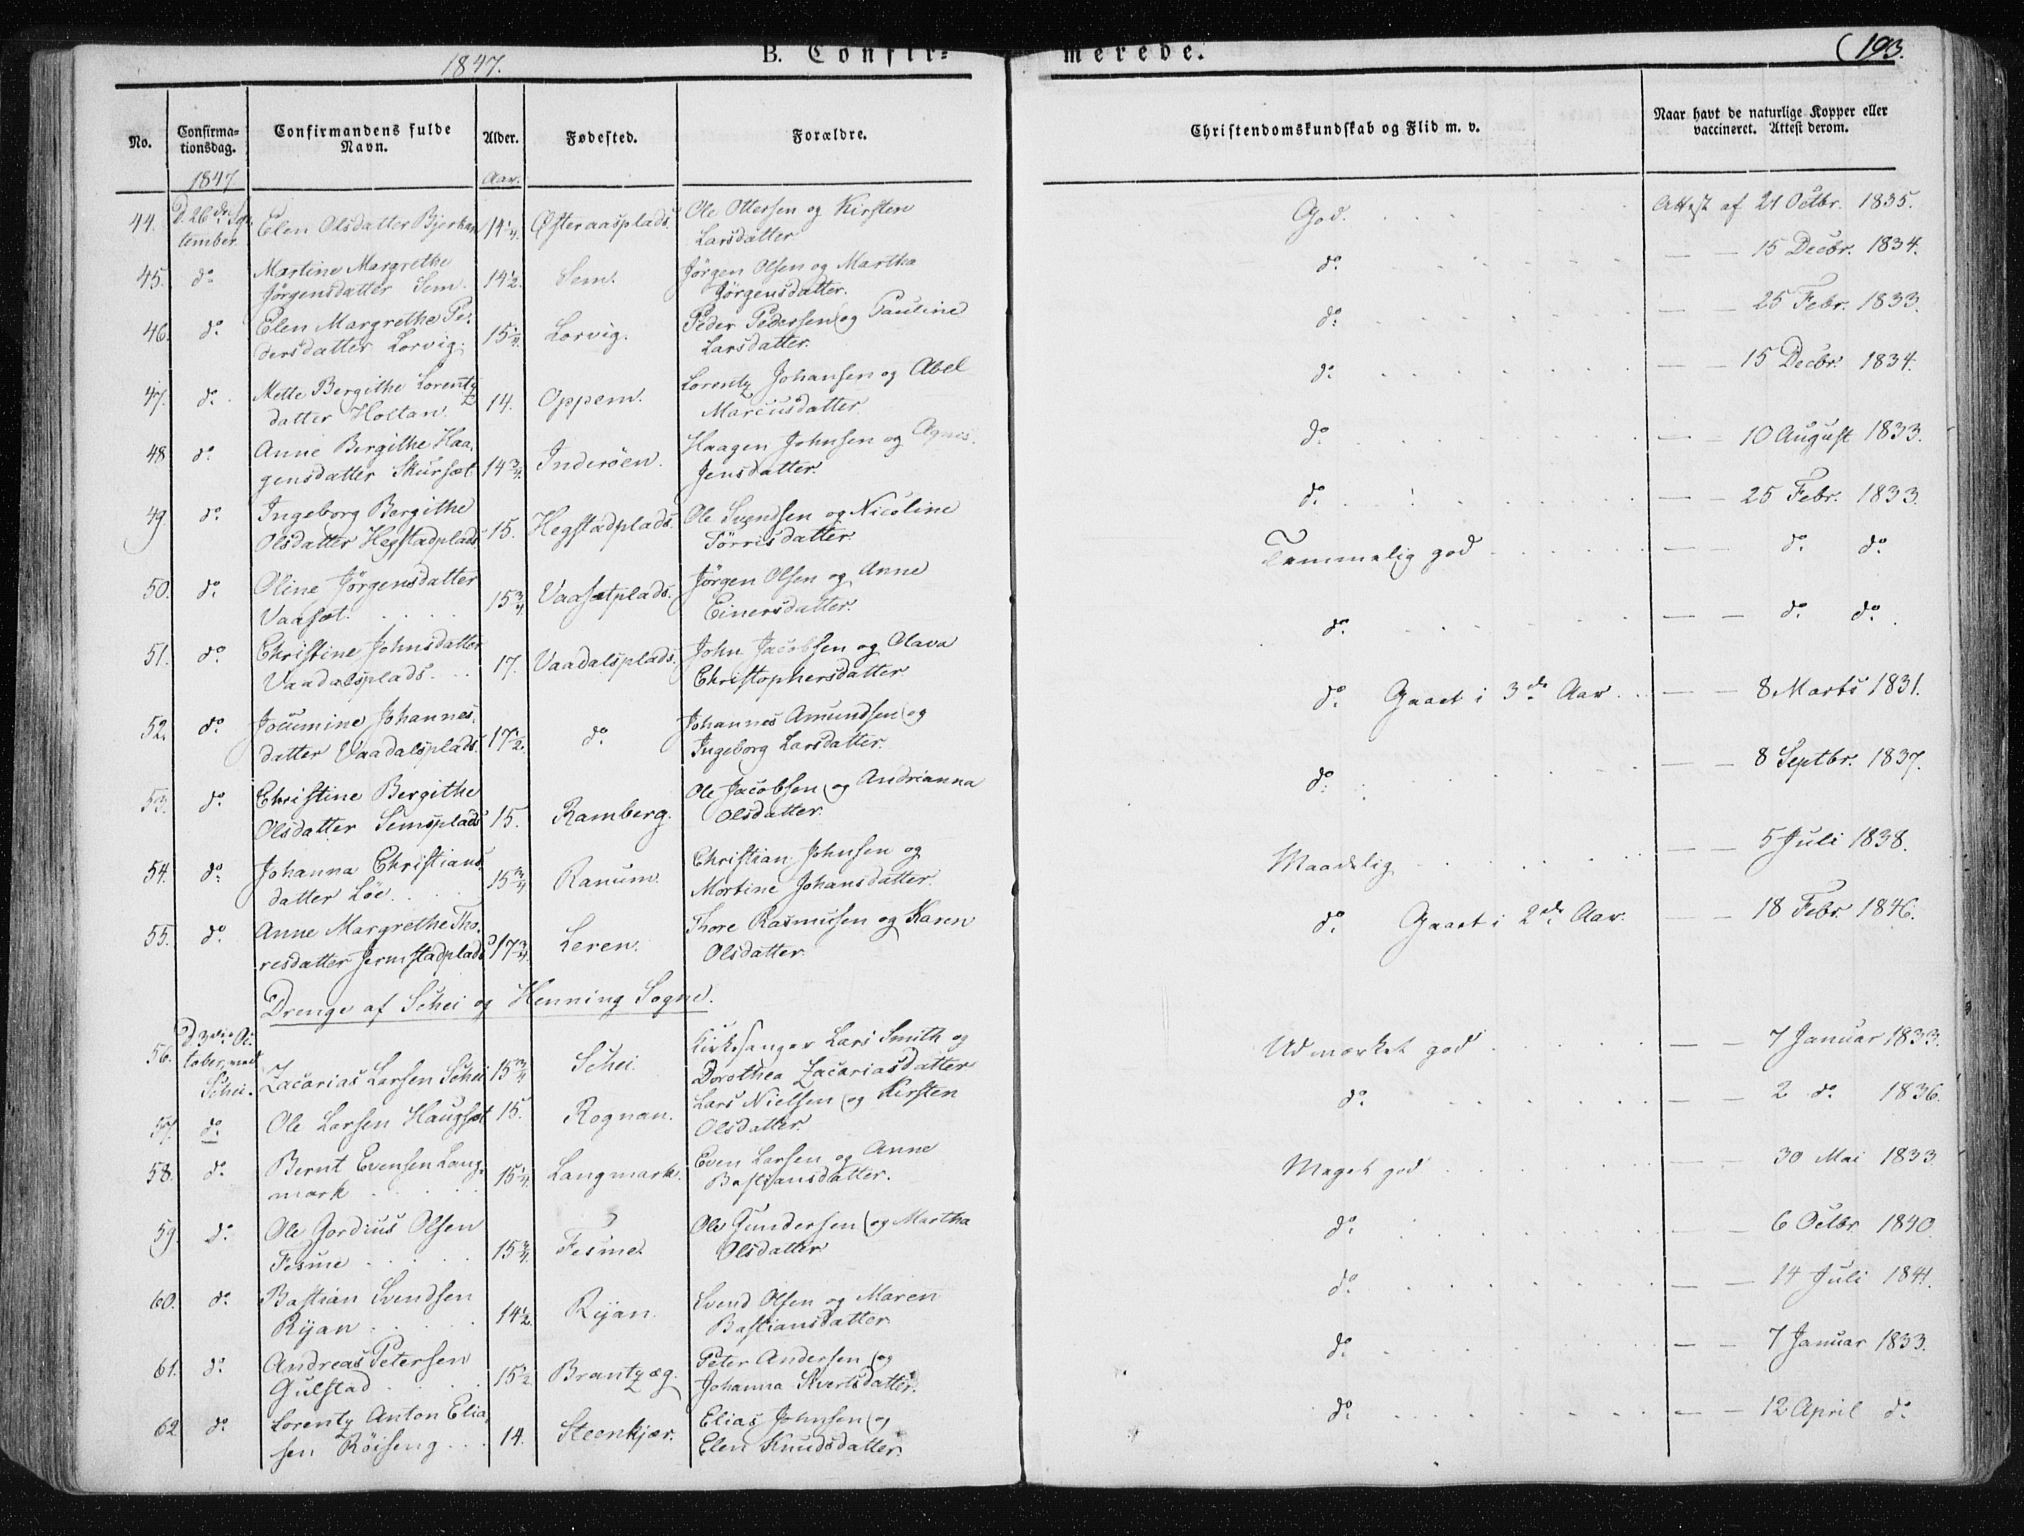 1847. B. Confir= merede. 193.
No. Confirma-tionsdag. Confirmandens fulde Navn. Alder. Fødested. Forældre. Christendomskundskab og Flid m. v. Naar havt de naturlige Kopper eller vaccineret. Attest derom.
1847 Aar.
44. D. 26de Sep- Elen Olsdatter Bjerkan 14¼ Østeraasplads. Ole Ottersen og Kirsten God. Attest af 21 Octbr. 1835.
tember. Larsdatter.
45. do Martine Margrethe 14½. Sem. Jörgen Olsen og Martha do — — 15 Decbr. 1834.
Jörgensdatter Sem. Jörgensdatter.
46. do Elen Margrethe Pe- 15¼. Lorvig. Peder Pedersen og Pauline do — — 25 Febr. 1833.
dersdatter Lorvig. Larsdatter.
47. do Mette Bergithe Lorentz 14. Oppem. Lorentz Johansen og Abel do — — 15 Decbr. 1834.
datter Holtan. Marciusdatter
48 do Anne Bergithe Haa- 14¾. Inderöen. Haagen Johnsen og Agnes do — — 10 August 1833.
gensdatter Skursæt Jensdatter.
49 do Ingeborg Bergithe 15. Hegstadplads. Ole Svendsen og Nicoline do — — 25 Febr. 1833.
Olsdatter Hegstadplads Törrisdatter.
50. do Oline Jörgensdatter 15¾ Vaasetplads. Jörgen Olsen og Anne Temmelig god — — do do
Vaasæt. Einersdatter.
51. do Christine Johnsdatter 17. Vaadalsplads. John Jacobsen og Olava do — — do do.
Vaadalsplads. Christophersdatter
52. do Jocumine Johannes- 17½. do Johannes Amundsen og do Gaaet i 3de Aar. — — 8 Marts 1831.
datter Vaadalsplads. Ingeborg Larsdatter.
53. do Christine Bergithe 15. Ramberg. Ole Jacobsen og Andrianna do — — 8 Septbr. 1837.
Olsdatter Semsplads Olsdatter.
54. do Johanna Christians- 15¾ Ranum. Christian Johnsen og Maadelig — — 5 Juli 1838.
datter Löe. Mortine Johansdatter.
55. do Anne Margrethe Tho- 17¾. Leren. Thore Rasmusen og Karen do Gaaet i 2de Aar. — — 18 Febr. 1846.
resdatter Jermstadplads Olsdatter
Drenge af Schei og Henning Sogne.
56. D. 3die Oc- Zacarias Larsen Schei 15¾ Schei. Kirkesanger Lars Smith og Udmærket god — — 7 Januar 1833.
tober, ved Schei. Dorothea Zacariasdatter
57. do Ole Larsen Haugset 15. Rognan. Lars Nielsen og Kirsten do — — 2 do 1836.
Olsdatter.
58. do Bernt Evensen Lang- 15¼. Langmark. Even Larsen og Anne Meget god — — 30 Mai 1833
mark Bastiansdatter.
59. do Ole Gordius Olsen 15¾. Fesme. Ole Gundersen og Martha do — 6 Octbr 1840.
Fesme Olsdatter
60. do Bastian Svendsen 14½. Ryan. Svend Olsen og Maren do — — 14 Juli 1841.
Ryan Bastiansdatter
61. do Andreas Petersen 15½ Brantzæg. Peter Andersen og do — — 7 Januar 1833.
Gulstad Johanna Sivertsdatter.
62 do Lorentz Anton Elia- 14. Steenkjær. Elias Johnsen og do — — 12 April do
sen Röiseng Elen Knudsdatter.